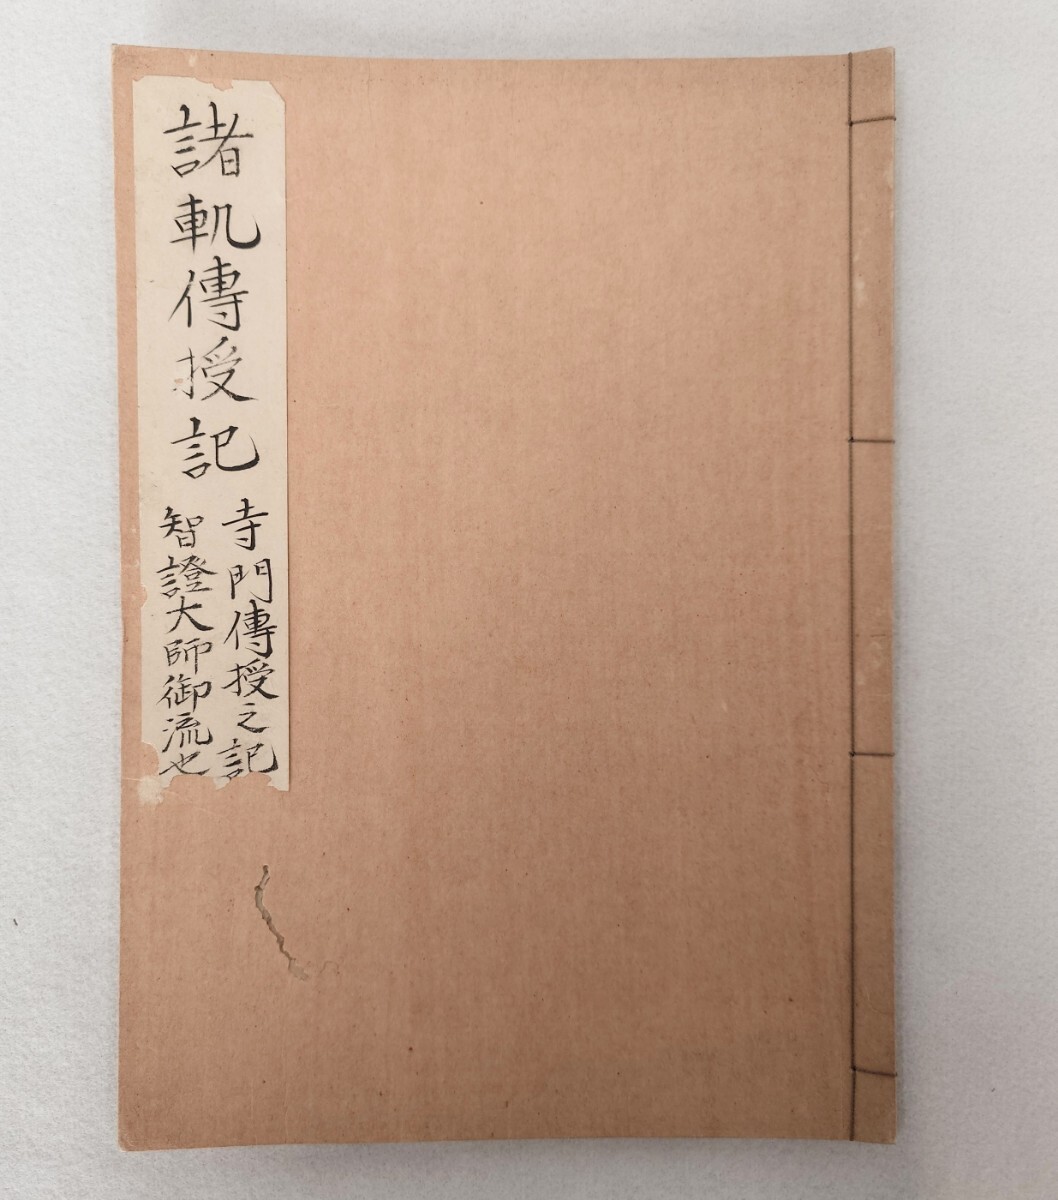 諸軌傳授記
寺門傳授之記
智證大師御流也